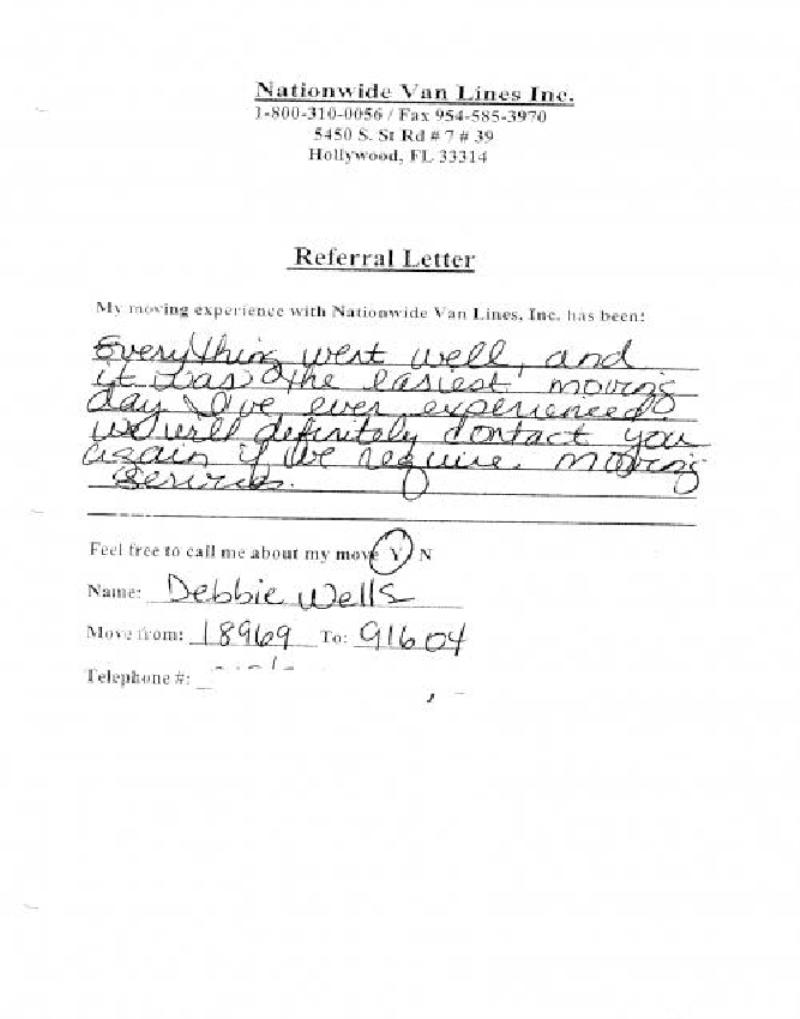 Nationwide Van Lines Inc.
1-800-310-0056 / Fax 954-585-3970
5450 S. St Rd # 7 # 39
Hollywood, FL 33314
Referral Letter
My moving experience with Nationwide Van Lines, Inc. has been:
Everything went well, and
it was the easiest moving
day I've ever experienced.
We will definitely contact you
again if we require moving
services.
Feel free to call me about my move Y N
Name: Debbie Wells
Move from: 18969 To: 91604
Telephone #: